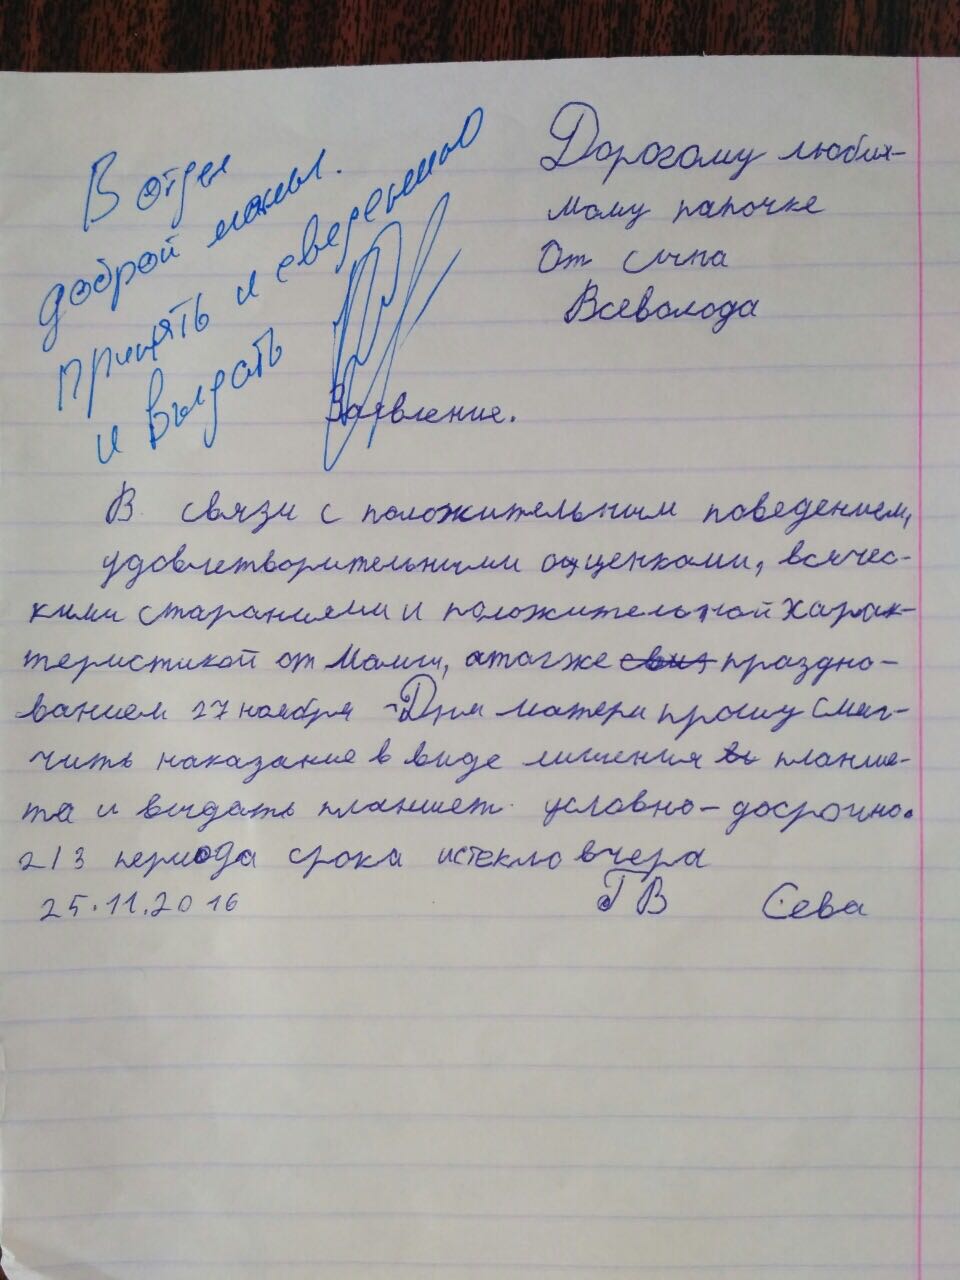 Дорогому любии-
мому папочке
От сына
Всеволода
В отдел
доброй мамы.
принять к сведению
и выдать
Заявление.
В связи с положительным поведением,
удовлетворительными оценками, всячес-
кими стараниями и положительной харак-
теристикой от Мамы, атагже праздно-
ванием 27 ноября - Дня матери прошу смяг-
чить наказание в виде лишения планше-
та и выдать планшет условно-досрочно.
2/3 периода срока истекло вчера
25.11.2016 ГВ Сева